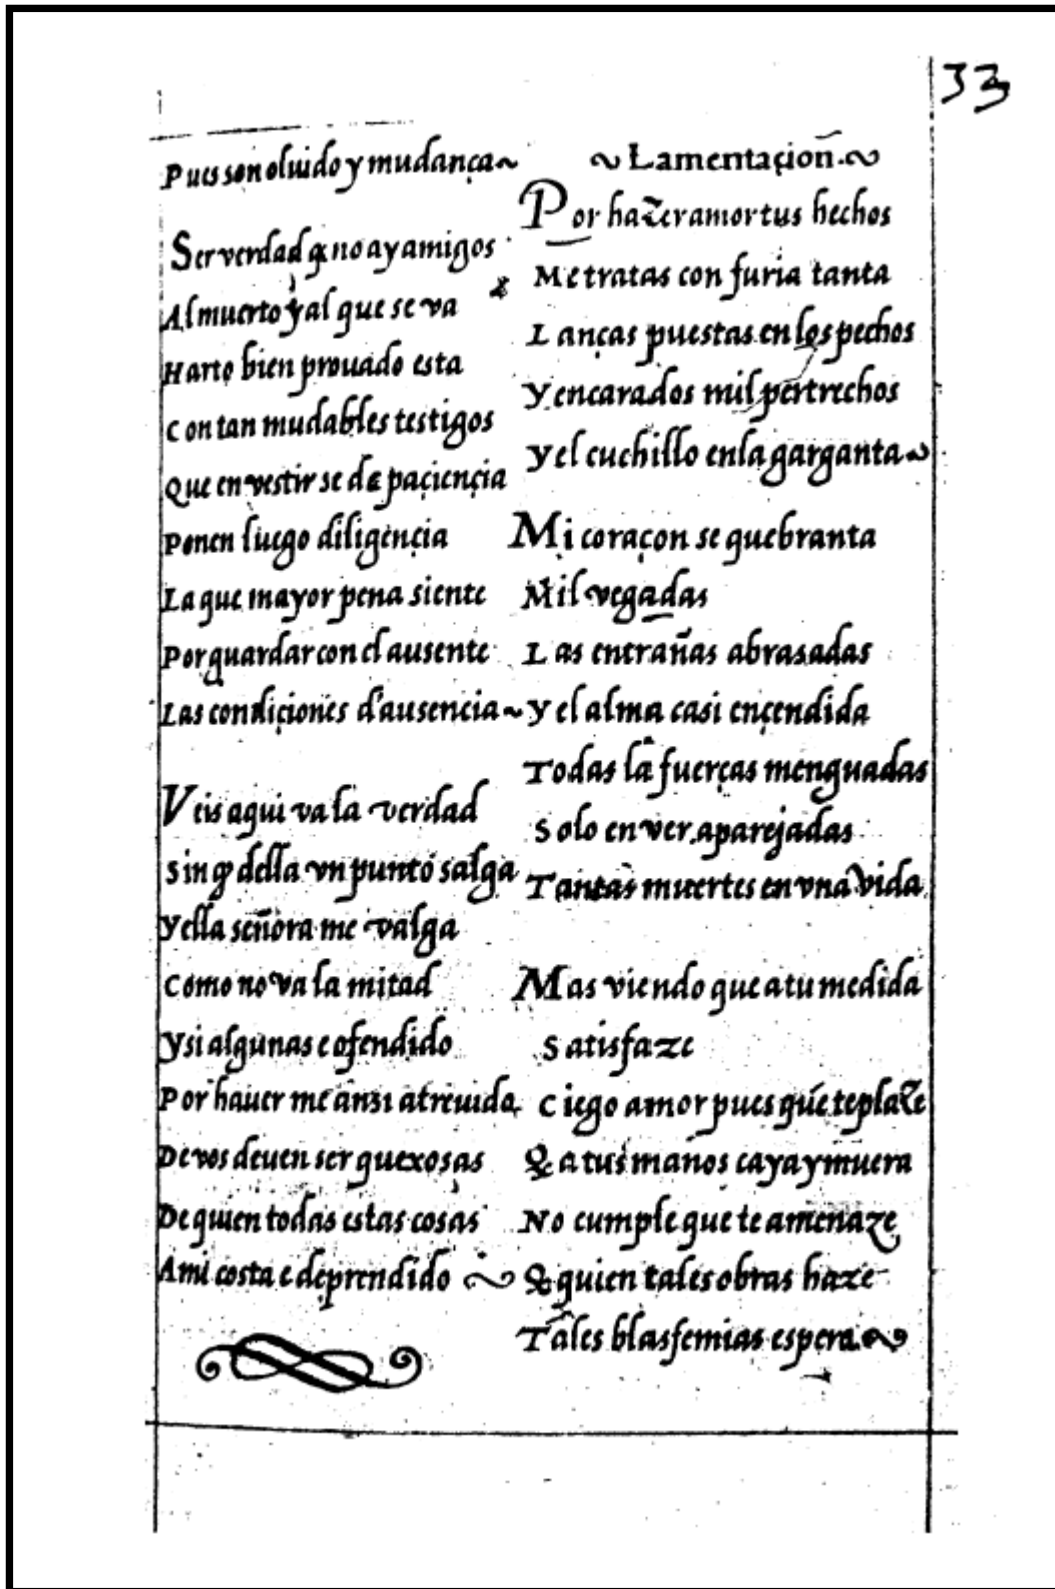 33
Pues son oluido y mudança~
Ser verdad q̃ no ay amigos
Al muerto y al que se va
Harto bien prouado esta
Con tan mudables testigos
Que en vestir se de paçiençia
Ponen luego diligençia
La que mayor pena siente
Por guardar con el ausente
Las condiçiones d'ausencia~
Veis aqui va la verdad
Sin q̃ della vn punto salga
Y ella señora me valga
Como no va la mitad
Y si algunas e ofendido
Por hauer me ansi atreuido
De vos deuen ser quexosas
De quien todas estas cosas
Ami costa e deprendido ~
~Lamentaçion̄.~
Por hazer amor tus hechos
Me tratas con furia tanta
Lanças puestas en los pechos
Y encarados mil pertrechos
Y el cuchillo enla garganta~
Mi coraçon se quebranta
Mil vegadas
Las entrañas abrasadas
Y el alma casi ençendida
Todas la fuerças menguadas
Solo en ver aparejadas
Tantas muertes en vna vida
Mas viendo que atu medida
Satisfaze
Ciego amor pues que te plaze
Q̃ a tus manos caya y muera
No cumple que te amenaze
Q̃ quien tales obras haze
Tales blasfemias espera~